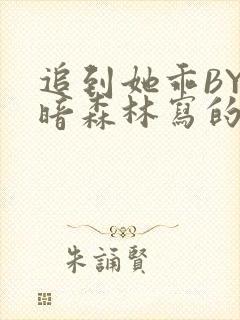 追到她乖BY
暗森林寫的
朱誦賢